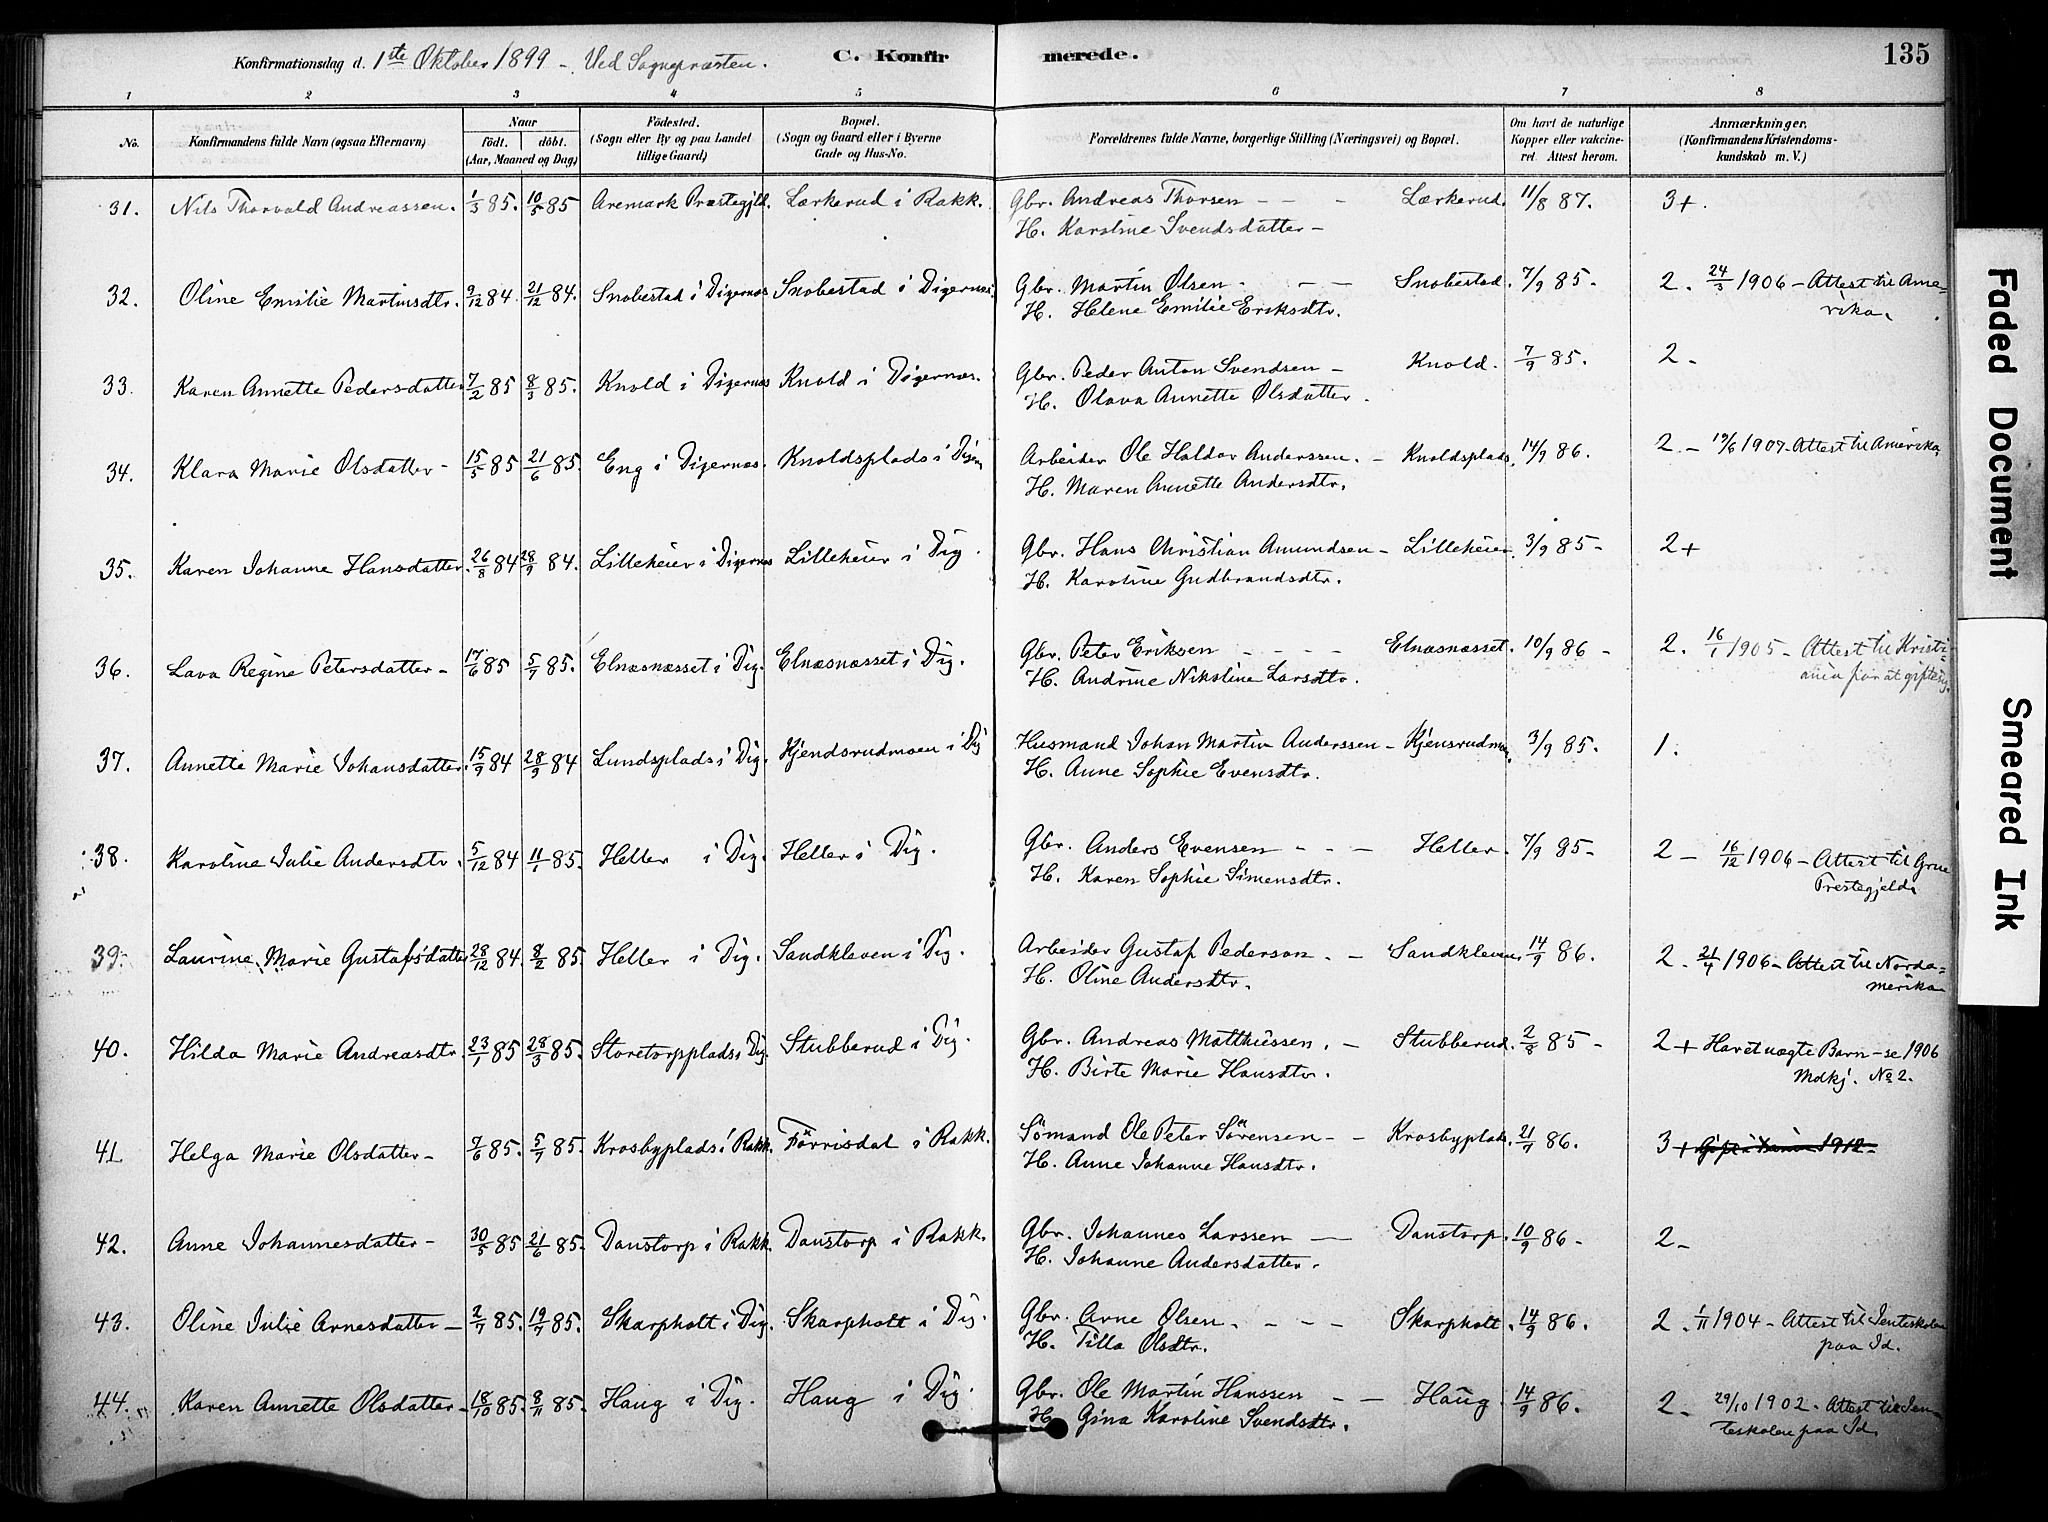 Konfirmationsdag d. 1ste Oktober 1899 – Ved Sognepræsten. C. Konfirmerede. 135
1 2 3 4 5 6 7 8
No. Konfirmandens fulde Navn (ogsaa Efternavn) Naar født. døbt. (Aar, Maaned og Dag) Fødested. (Sogn eller By og paa Landet tillige Gaard) Bopæl. (Sogn og Gaard eller i Byerne Gade og Hus-No. Forældrenes fulde Navne, borgerlige Stilling (Næringsvei) og Bopæl. Om havt de naturlige Kopper eller vakcineret. Attest herom. Anmærkninger. (Konfirmandens Kristendomskundskab m. V.)
31. Nils Thorvald Andreassen. 1/3 85. 10/5 85 Aremark Præstegjld. Lærkerud i Rakk. Gbr. Andreas Thorsen – – – Lærkerud. 11/8 87. 3+.
H. Karoline Svendsdatter –
32. Oline Emilie Martinsdtr. 9/12 84. 21/12 84. Snobestad i Digernæs Snobestad i Digernæs. Gbr. Martin Olsen. – – Snobestad. 7/9 85. 2. 24/3 1906 – Attest til Ame-
H. Helene Emilie Eriksdtr. rika.
33. Karen Annette Pedersdatter 7/2 85 8/3 85. Knold i Digernæs Knold i Digernæs. Gbr. Peder Anton Svendsen – Knold. 7/9 85. 2 –
H. Olava Annette Olsdatter.
34. Klara Marie Olsdatter – 15/5 85 21/6 85. Eng i Digernæs. Knoldsplads i Digern Arbeider Ole Haldor Anderssen. – Knoldsplads. 14/9 86. 2 – 19/6 1907 – Attest til Amerika.
H. Maren Annette Andersdtr.
35. Karen Johanne Hansdatter. 26/8 84 28/9 84. Lilleheier i Digernæs Lilleheier i Dig. Gbr. Hans Christian Amundsen – Lilleheier. 3/9 85 – 2+
H. Karoline Gudbrandsdtr.
36. Lava Regine Petersdatter – 17/6 85 5/7 85. Elnæsnæsset i Dig. Elnæsnæsset i Dig. Gbr. Peter Eriksen – – – – Elnæsnæsset. 10/9 86 – 2. 16/1 1905 – Attest til Kristi-
H. Andrine Nikoline Larsdtr. ania for at gifte sig.
37. Annette Marie Johansdatter. 15/9 84 28/9 84 Lundsplads i Dig. Kjendsrudmoen i Dig Husmand Johan Martin Anderssen – Kjensrudmoen. 3/9 85. 1.
H. Anne Sophie Evensdtr.
38. Karoline Julie Andersdtr. 5/12 84 11/1 85. Heller i Dig. Heller i Dig. Gbr. Anders Evensen – – – Heller. 7/9 85 – 2 – 16/12 1906 – Attest til Grue
H. Karen Sophie Simensdtr. Prestegjeld.
39. Laurine Marie Gustafsdatter 28/12 84. 8/2 85. Heller i Dig. Sandkleven i Dig. Arbeider Gustaf Pederson. – Sandkleven. 14/9 86. 2. 21/4 1906 – Attest til Norda-
H. Oline Andersdtr. merika
40. Hilda Marie Andreasdtr. 23/1 85 28/3 85. Storetorpplads i Dig. Stubberud i Dig. Gbr. Andreas Matthissen. – Stubberud. 2/8 85 – 2 + Har et uægte Barn – se 1906
H. Birte Marie Hansdtr. Mdkj. No 2.
41 Helga Marie Olsdatter – 7/6 85. 5/7 85. Krosbyplads i Rakk. Förrisdal i Rakk. Sömand Ole Peter Sörensen – – Krosbyplads. 21/9 86. 3+
H. Anne Johanne Hansdtr.
42. Anne Johannesdatter – 30/5 85 21/6 85. Danstorp i Rakk. Danstorp i Rakk. Gbr. Johannes Larssen – Danstorp. 10/9 86 – 2 –
H. Johanne Andersdatter.
43. Oline Julie Arnesdatter – 2/7 85. 19/7 85. Skarpholt i Dig. Skarpholt i Dig. Gbr. Arne Olsen. – – – Skarpholt. 14/9 86. 2. 1/11 1904 – Attest til Jenteskolen
H. Tilla Olsdtr. paa Id.
44. Karen Annette Olsdatter – 18/10 85. 8/11 85. Haug i Dig. Haug i Dig. Gbr. Ole Martin Hanssen – – Haug. 14/9 86. 2 – 29/10 1902 – Attest til Jen-
H. Gina Karoline Svendsdtr. teskolen paa Id.
Faded Document
Smeared Ink